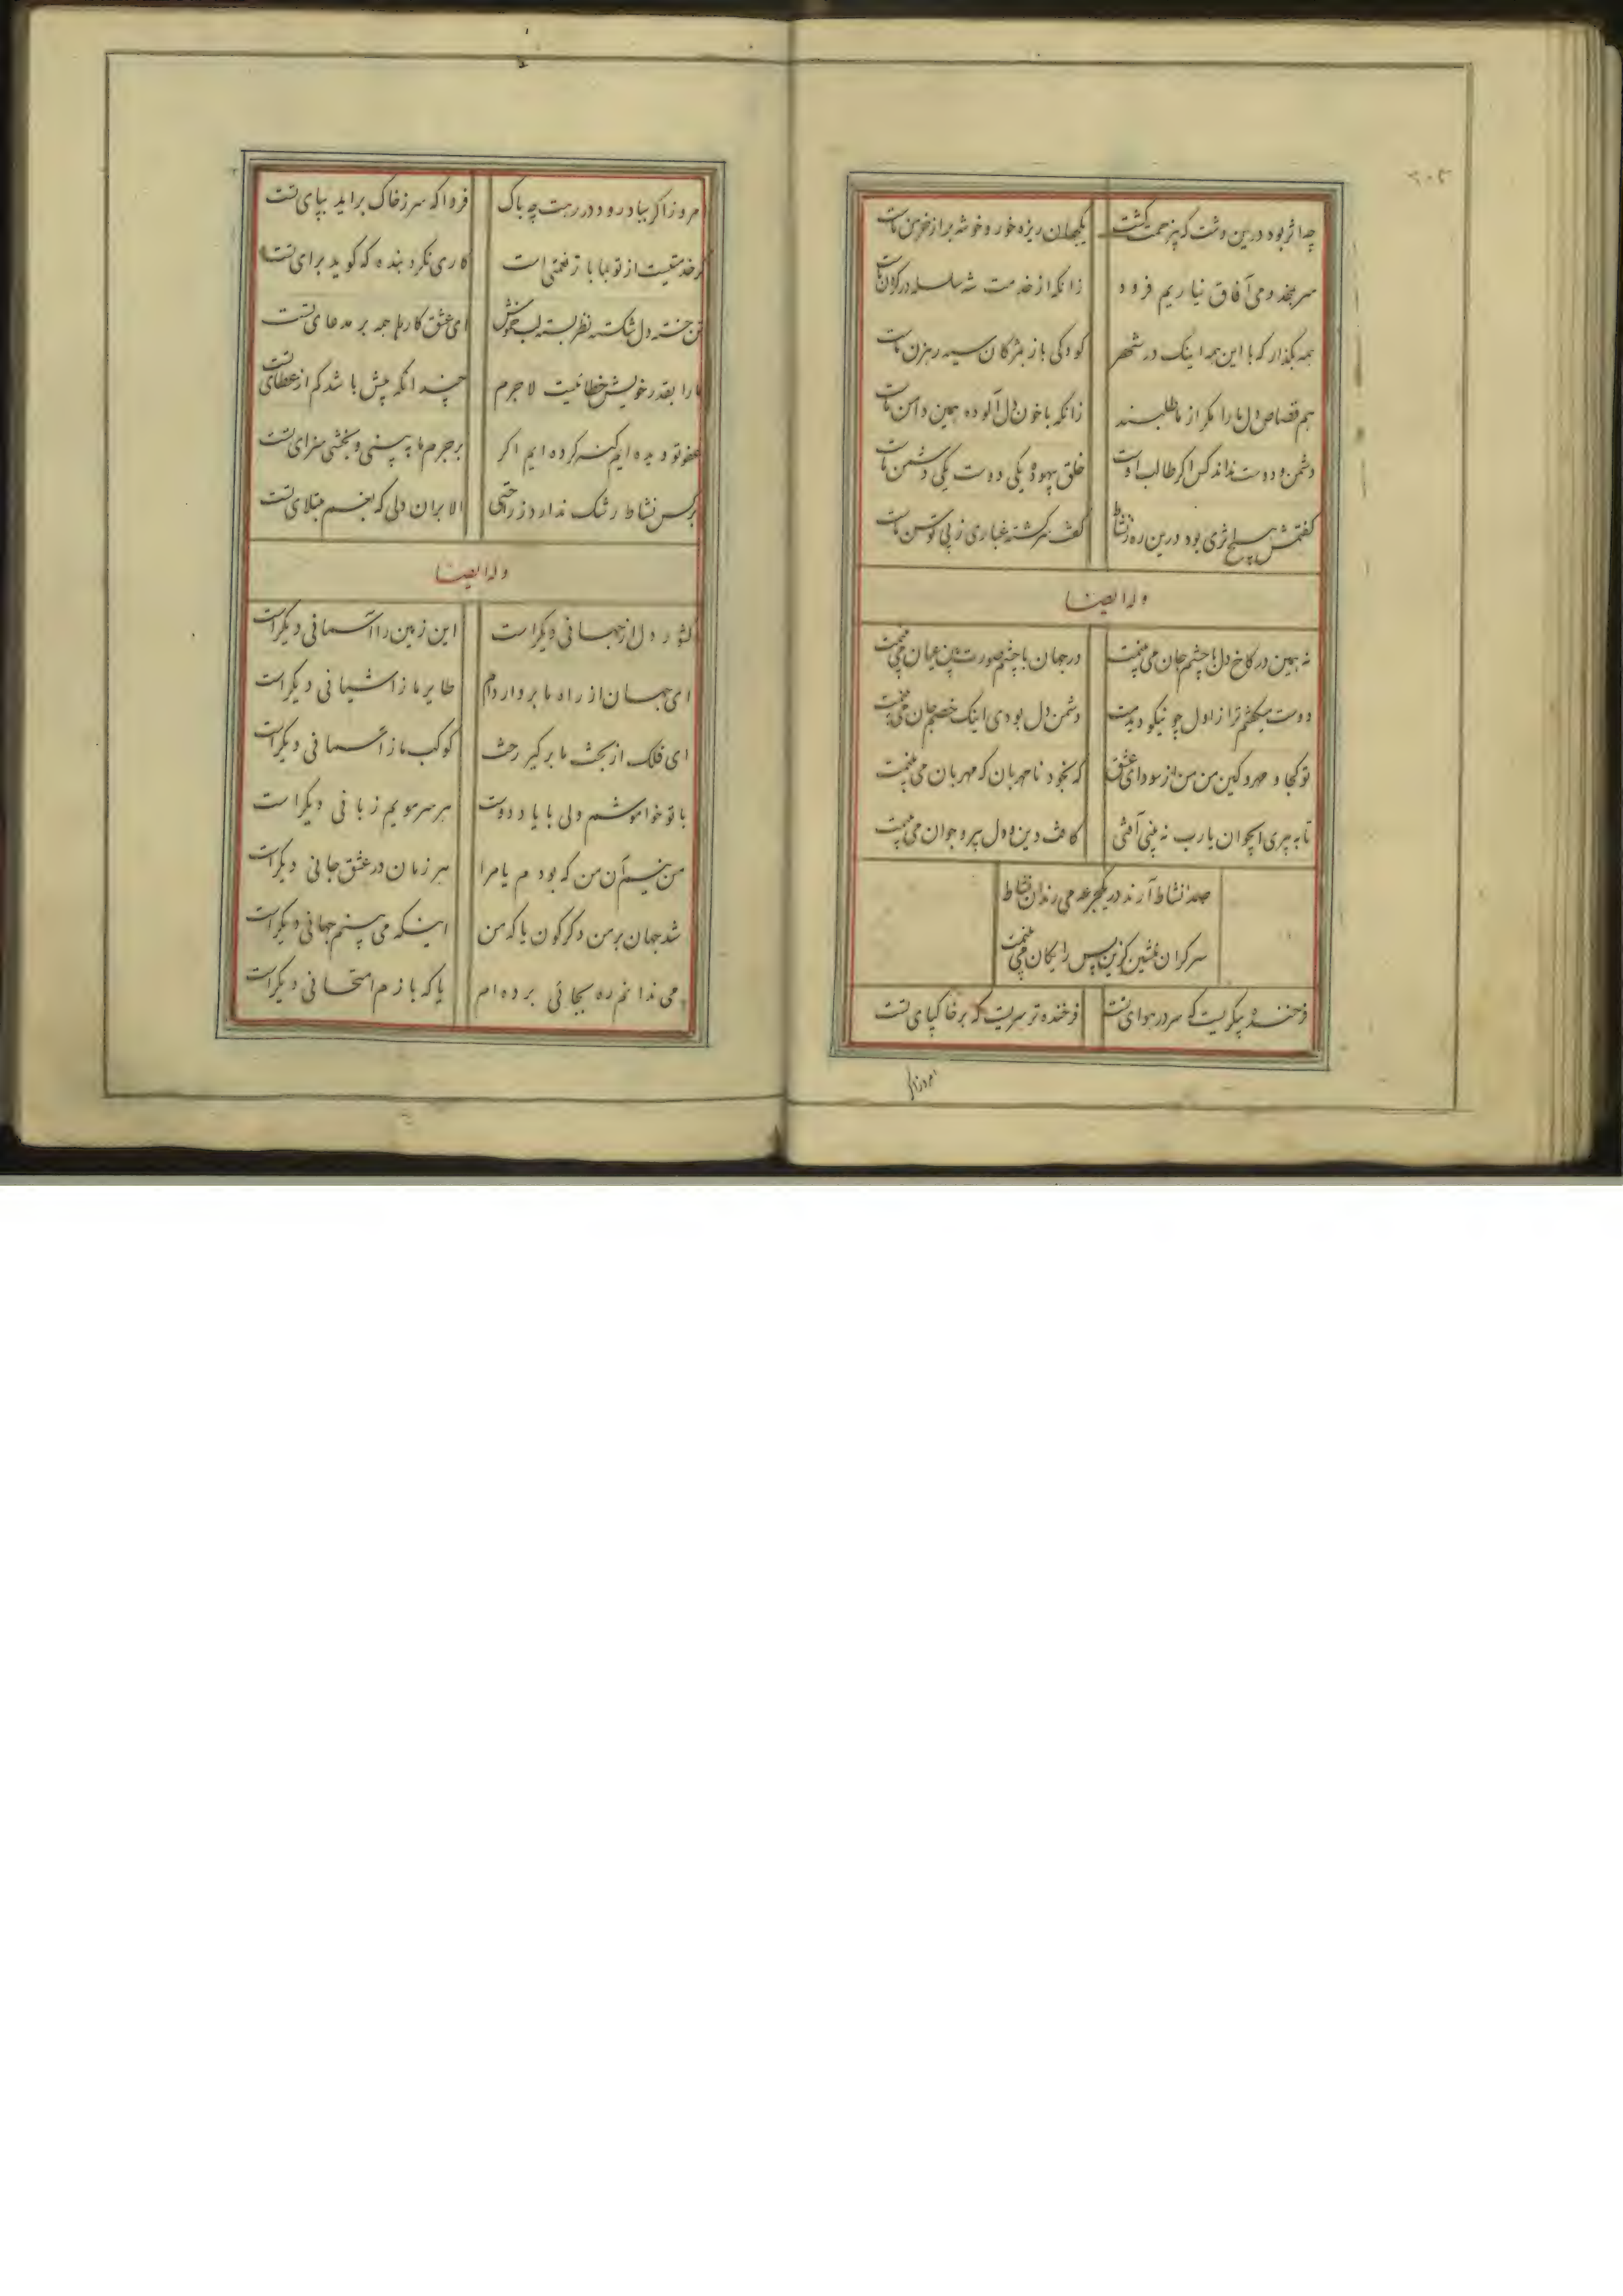 ۲۰۲
چه اثر بود درین دشت که بیزحمت کشت یکجهان ریزه خور و خوشه بر از خرمن ماست
سر بمخدومی آفاق نیاریم فرود زانکه از خدمت شه سلسله در کردن ماست
همه بکذار که با این همه اینک در شهر کودکی باز بمژکان سیه رهزن ماست
هم قصاص دل ما را مکر از ما طلبند زانکه با خون دل آلوده همین دامن ماست
دشمن و دوست نداند کس اکر طالب اوست خلق بیهوده یکی دوست یکی دشمن ماست
کفتمش هیچ اثری بود درین ره ز نشاط کفت برکشته غباری ز پی توسن ماست
وله ایضا
نه همین در کاخ دل با چشم جان می بینمت در جهان با چشم صورت بین عیان می بینمت
دوست میکفتم ترا ز اول چو نیکو دیدمت دشمن دل بودی اینک خصم جان می بینمت
تو کجا و مهر و کین من من از سودای عشق که بخود نامهربان که مهربان می بینمت
تا به پیری ای جوان یارب نه بینی آفتی کافت دین و دل پیر و جوان می بینمت
صد نشاط آرند در یکجرعه می رندان نشاط
سرکران منشین کزین پس رایکان می بینمت
فرخنده پیکریست که سر در هوای تست فرخنده تر سریست که بر خاکپای تست
امروز اکر
امروز اکر بباد رود در رهت چه باک فردا که سر ز خاک براید بپای تست
کر خدمتیست از تو بما باز نعمتی است کاری نکرد بنده که کوید برای تست
تن خسته دل شکسته نظر بسته لب خموش ای عشق کارها همه بر مدعای تست
ما را بقدر خویش خطائیست لاجرم چندانکه بیش باشد کم از عطای تست
عفو تو دیده ایم کنه کرده ایم اکر بر جرم ما ببینی و بخشی سزای تست
بر کس نشاط رشک ندارد ز راحتی الا بران دلی که بغم مبتلای تست
وله ایضا
کشور دل از جهانی دیکر است این زمین را آسمانی دیکر است
ای جهان از راه ما بردار دام طایر ما ز اشیانی دیکر است
ای فلک از بخت ما برکیر رخت کوکب ما ز آسمانی دیکر است
با تو خاموشم ولی با یاد دوست هر سر مویم زبانی دیکر است
من نیم آن من که بودم یا مرا هر زمان در عشق جانی دیکر است
شد جهان بر من دکرکون یا که من اینکه می بینم جهانی دیکر است
می ندانم ره بجائی برده ام یا که بازم امتحانی دیکر است